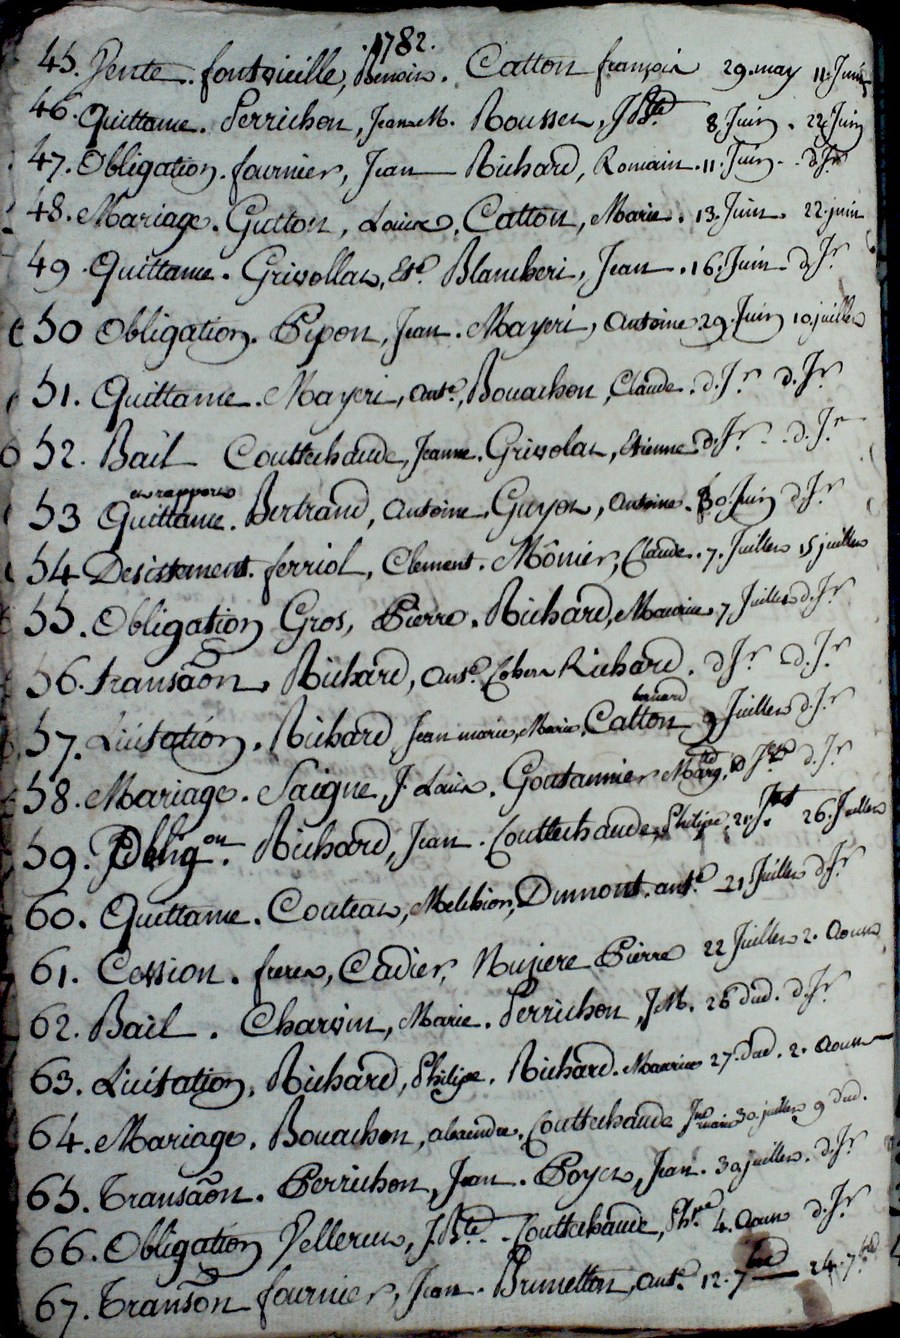 1782.
45. Vente. fontvieille, Benoit. Catton françois 29. may 11. Juin
46. Quittance. Perrichon, Jean M. Rousset, J Bte. 8 Juin. 22 Juin
47. Obligation. fournier, Jean Richard, Romain. 11. Juin. d. Jr
48. Mariage. Gutton, Louise. Catton, Marie. 13. Juin. 22. juin
49. Quittance. Grivollat, Ete. Blancheri, Jean. 16. Juin. d. Jr
50 Obligation. Pipon, Jean. Mayeri, Antoine 29. Juin 10. juillet
51. Quittance. Mayeri, Ante. Bouachon, Claude. d. Jr d. Jr
52. Bail Couttechaude, Jeanne. Grivolat, Etienne d. Jr. d. Jr
et rapport
53 Quittance. Bertrand, Antoine. Guyot, Antoine. 30. Juin d. Jr
54 Desistement. ferriol, Clement. Mônier, Claude. 7. Juillet 15 juillet
55. Obligation Gros, Pierre. Richard, Maurice 7 Juillet d. Jr
56. transaõn. Richard, Ante. Richard. d Jr d. Jr
bernard
57. Licitation. Richard Jean marie, Marie, Catton 9 Juillet d. Jr
58. Mariage. Saigne, J. Louis. Goutannier d. Jr
59. Obligon. Richard, Jean. Couttechaude, Philipe, 21. Jlet 26. Juillet
60. Quittance. Couteau, Melchion, Dumont. ante 21 Juillet d. Jr
61. Cession. freres, Cadier, Nujiere Pierre 22 Juillet 2. Aoust
62. Bail. Charvin, Marie. Perrichon, J M. 26 dud. d. Jr
63. Licitation, Richard, Philipe. Richard. Maurice 27. dud. 2. Aoust
64. Mariage. Bouachon, alexendre. Couttechaude Jne marie 30. juillet 9 dud.
65. Transaõn. Perrichon, Jean. Poyet, Jean. 30 juillet. d. Jr
66. Obligation Pellerin, J. Bte. Couttechaude, Phpe 4. Aoust d. Jr
67. Transõn fournier, Jean. Brunetton, Ante. 12. 7bre 24. 7bre